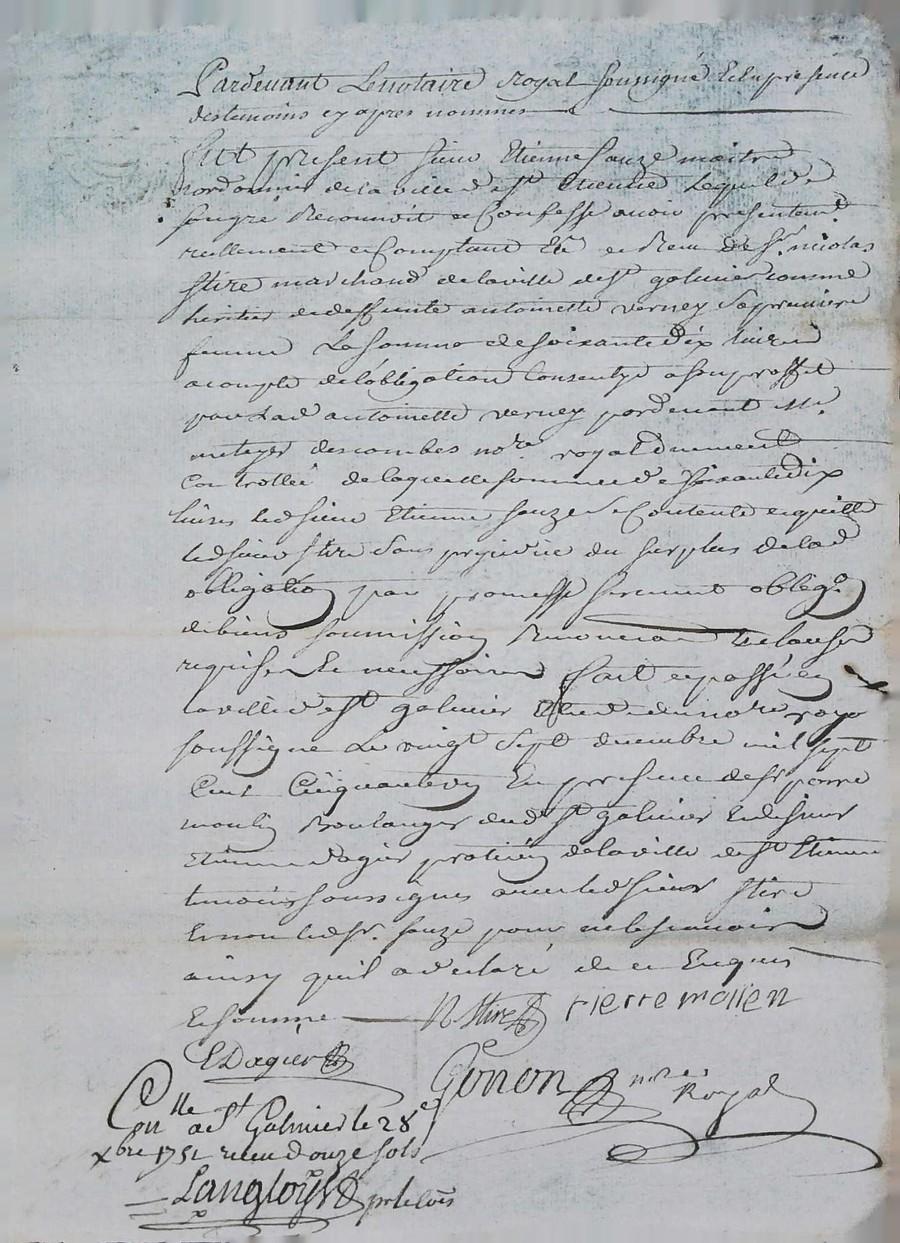 Pardevant Le notaire Royal soussigné Et En presence
des temoins cy apres nommes
fut present sieur Etienne Sauze maitre
cordonnier de la ville de St Etienne Lequel de
son gré Reconnoit et Confesse avoir presentemt
reellement et Comptant Eu et Receu de Sr. nicolas
Stire marchand de la ville de St galmier comme
heritier de deffunte antoinette verney sa premiere
femme La somme de soixante dix livres
a compte de lobligation Consentye a son proffit
par Lad antoinette verney pardevant Me.
descombes nore royal duement
Controllée de laquelle somme de soixante dix
livres ledt sieur Etienne Sauze se Contente et quitte
ledt sieur Stire sans prejudice du surplus de lad
obligation par promesse serment obligon
de biens soumission Renonciaon Et clauses
requises Et necessaires fait et passé en
la ville de St galmier Etude du nore royal
soussigné Le vingt sept decembre mil sept
Cent Cinquante En presence de Sr pierre
Boulanger dudt St galmier Et de sieur
Etienne Dagier praticien de la ville de St Etienne
temoins soussignes avec ledt sieur Stire
Et non ledt Sr. Sauze pour ne le scavoir
ainsy quil a declaré de ce Enquis
Et sommé N Stire Pierre
E Dagier
Gonon nore Royal
Conlle a St Galmier le 28e
xbre 1751 receu douze sols
Langloys